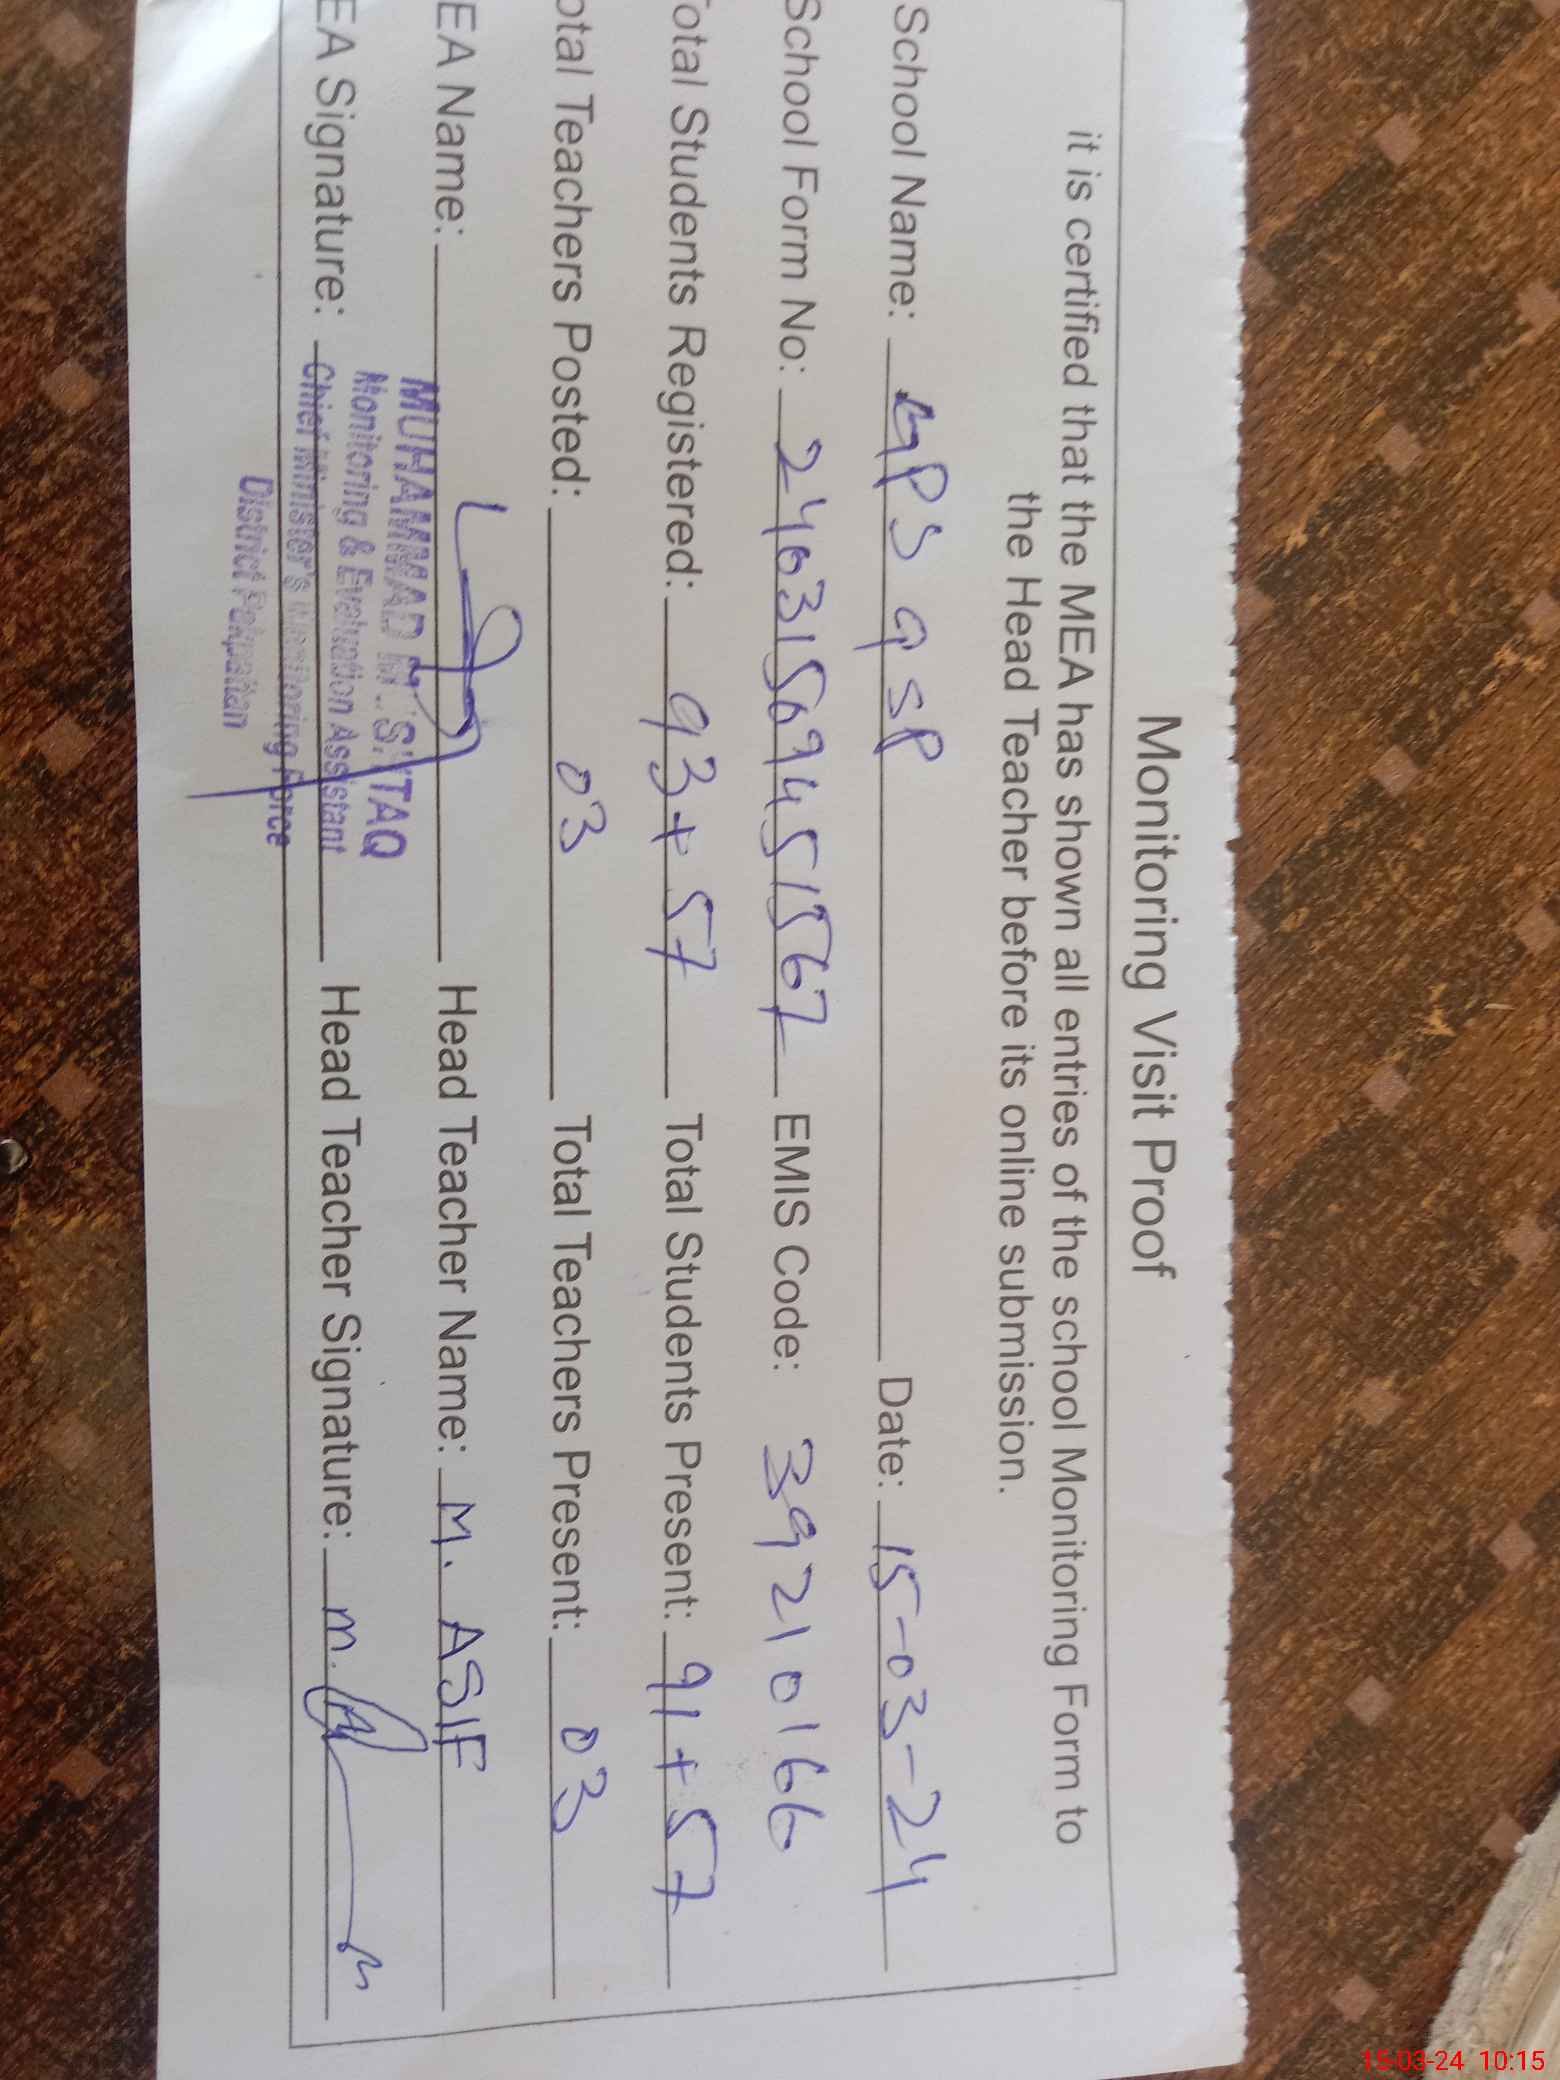 Monitoring Visit Proof
it is certified that the MEA has shown all entries of the school Monitoring Form to
the Head Teacher before its online submission.
School Name: GPS 9 SP Date: 15-03-24
School Form No: 24631569451567 EMIS Code: 39210166
Total Students Registered: 93+57 Total Students Present: 91+57
otal Teachers Posted: 03 Total Teachers Present: 03
EA Name: Head Teacher Name: M. ASIF
MUHAMMAD MUSHTAQ
Monitoring & Evaluation Assistant
EA Signature: Head Teacher Signature: M.
Chief Minister's Monitoring Force
District Pakpattan
15-03-24 10:15